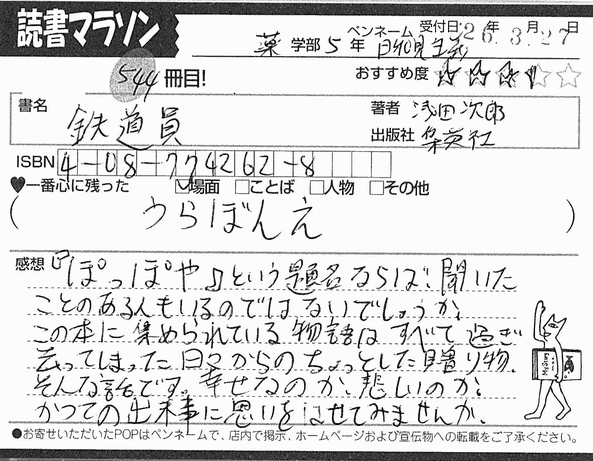 読書マラソン
ペンネーム 受付日'26年3月27日
薬学部5年 日和見主義
544冊目!
おすすめ度 ★★★☆☆
書名
鉄道員
著者 浅田次郎
出版社 集英社
ISBN 4-08-774262-8
♥一番心に残った ☑場面 □ことば □人物 □その他
(うらぼんえ)
感想 『ぽっぽや♪という題名ならば、聞いた
ことのある人もいるのではないでしょうか。
この本に集められている物語はすべて過ぎ
去ってしまった日々からのちょっとした贈り物。
そんな話です。幸せなのか、悲しいのか。
かつての出来事に思いをはせてみませんか。
●お寄せいただいたPOPはペンネームで、店内で掲示、ホームページおよび宣伝物への転載をご了承ください。